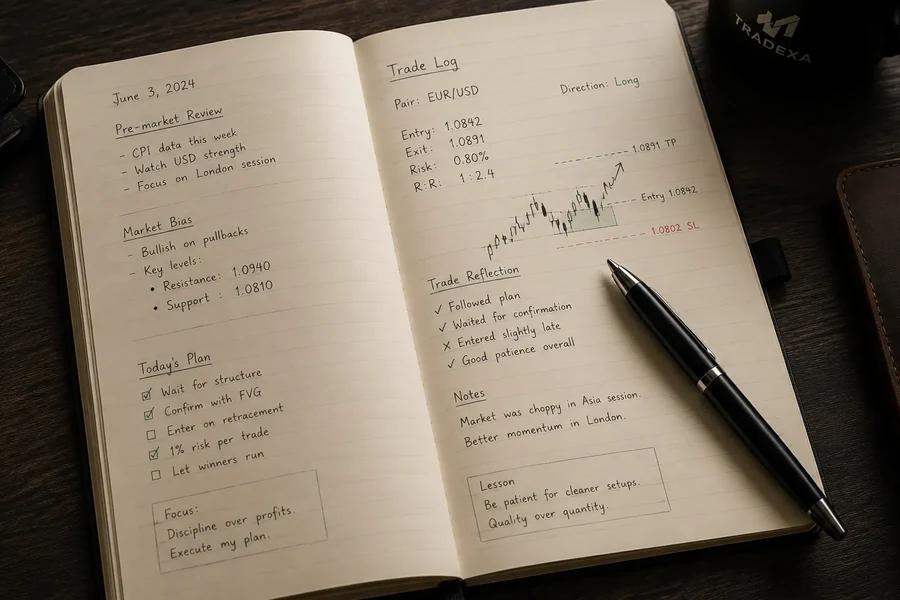 June 3, 2024
Pre-market Review
- CPI data this week
- Watch USD strength
- Focus on London session
Market Bias
- Bullish on pullbacks
- Key levels:
• Resistance: 1.0940
• Support : 1.0810
Today's Plan
☑ Wait for structure
☑ Confirm with FVG
☐ Enter on retracement
☑ 1% risk per trade
☐ Let winners run
Focus:
Discipline over profits.
Execute my plan.
Trade Log
Pair: EUR/USD
Direction: Long
Entry: 1.0842
Exit: 1.0891
Risk: 0.80%
R:R: 1:2.4
1.0891 TP
Entry 1.0842
1.0802 SL
Trade Reflection
✓ Followed plan
✓ Waited for confirmation
✗ Entered slightly late
✓ Good patience overall
Notes
Market was choppy in Asia session.
Better momentum in London.
Lesson
Be patient for cleaner setups.
Quality over quantity.
TRADEXA